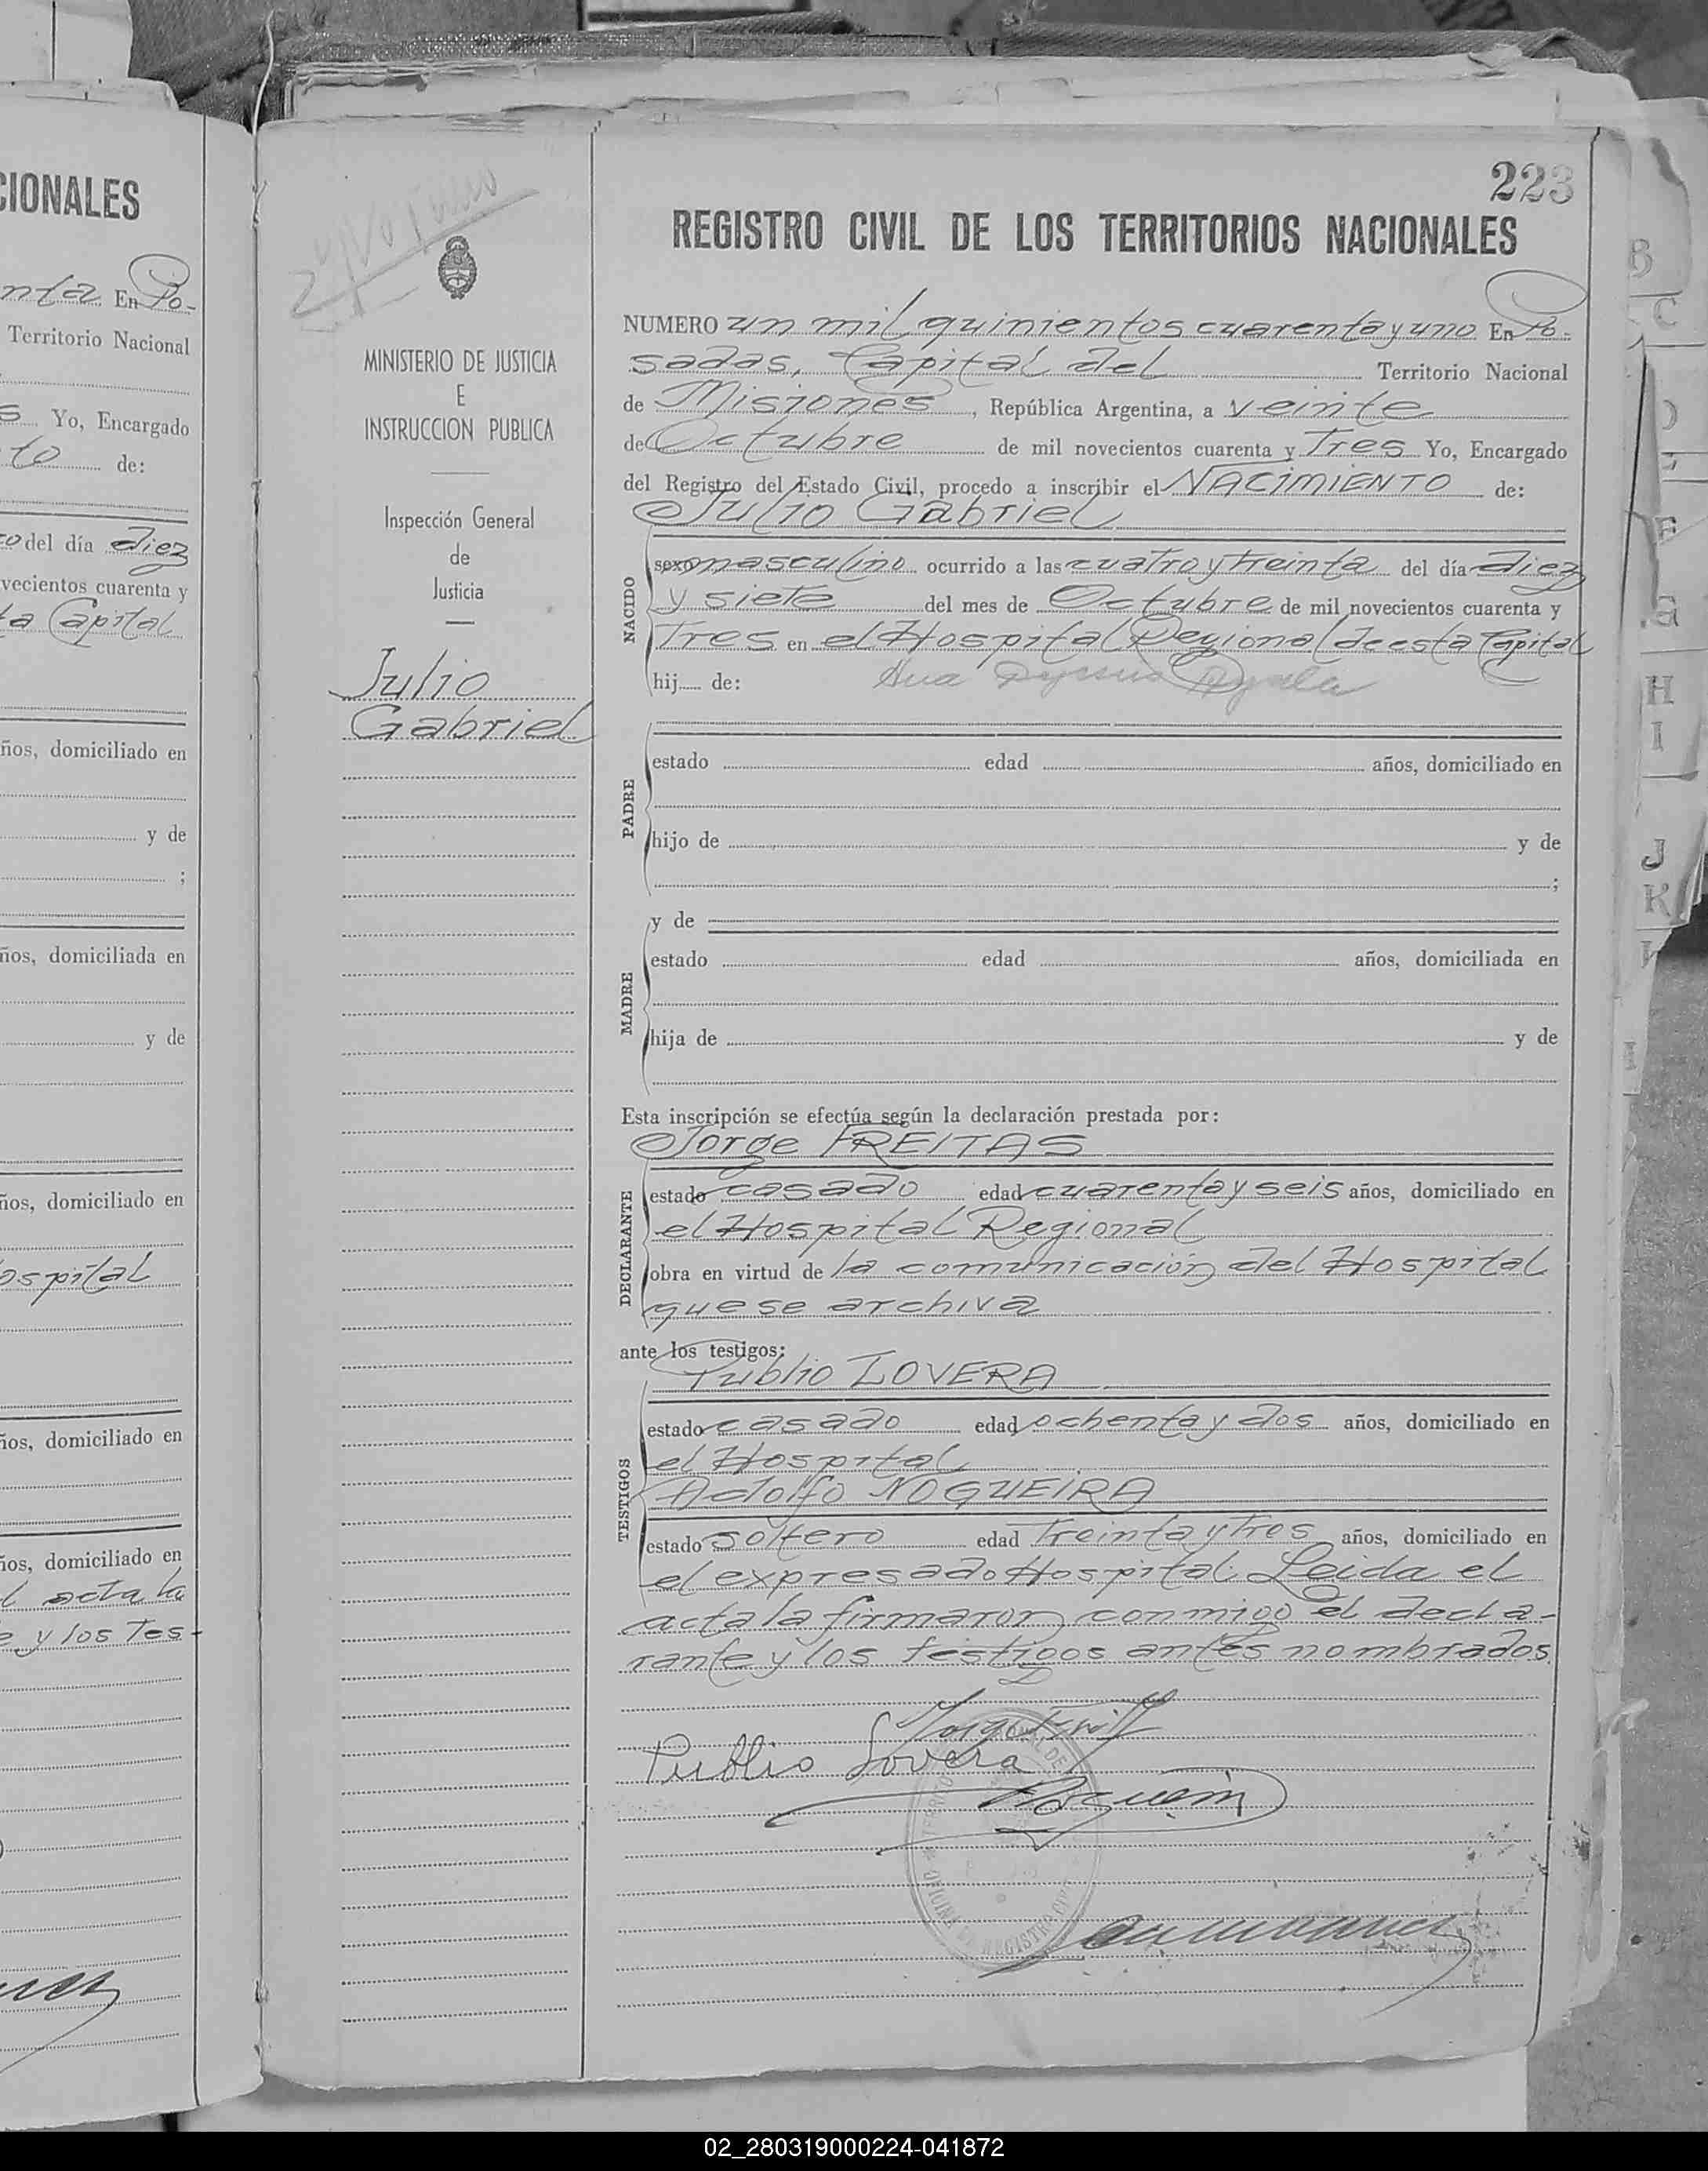 CIONALES
nta En Po-
Territorio Nacional
s Yo, Encargado
to de:
o del día diez
vecientos cuarenta y
ta Capital
ños, domiciliado en
y de
;
ños, domiciliada en
y de
ños, domiciliado en
ospital
ños, domiciliado en
ños, domiciliado en
l acta la
e y los Tes-
MINISTERIO DE JUSTICIA
E
INSTRUCCION PUBLICA
Inspección General
de
Justicia
Julio
Gabriel
223
REGISTRO CIVIL DE LOS TERRITORIOS NACIONALES
NUMERO un mil quinientos cuarenta y uno En Po-
sadas, Capital del Territorio Nacional
de Misiones, República Argentina, a veinte
de Octubre de mil novecientos cuarenta y Tres Yo, Encargado
del Registro del Estado Civil, procedo a inscribir el NACIMIENTO de:
Julio Gabriel
NACIDO
sexo masculino ocurrido a las cuatro y treinta del día diez
y siete del mes de Octubre de mil novecientos cuarenta y
Tres en el Hospital Regional de esta Capital
hij de: Ayala
PADRE
estado edad años, domiciliado en
hijo de y de
;
MADRE
y de
estado edad años, domiciliada en
hija de y de
Esta inscripción se efectúa según la declaración prestada por:
Jorge FREITAS
DECLARANTE
estado casado edad cuarenta y seis años, domiciliado en
el Hospital Regional
obra en virtud de la comunicación del Hospital
que se archiva
ante los testigos:
Publio LOVERA
TESTIGOS
estado casado edad ochenta y dos años, domiciliado en
el Hospital
Adolfo NOGUEIRA
estado soltero edad treinta y tres años, domiciliado en
el expresado Hospital. Leida el
acta la firmaron conmigo el decla-
rante y los testigos antes nombrados
Publio Lovera
B
C
D
E
F
G
H
I
J
K
02_280319000224-041872